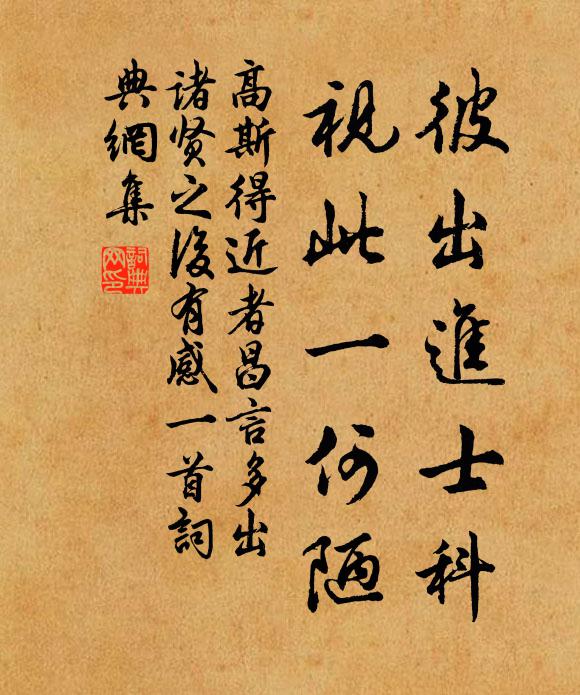 彼出進士科
視此一何陋
高斯得近者昌言多出
诸贤之後有感一首詞
典網集
詞典網印